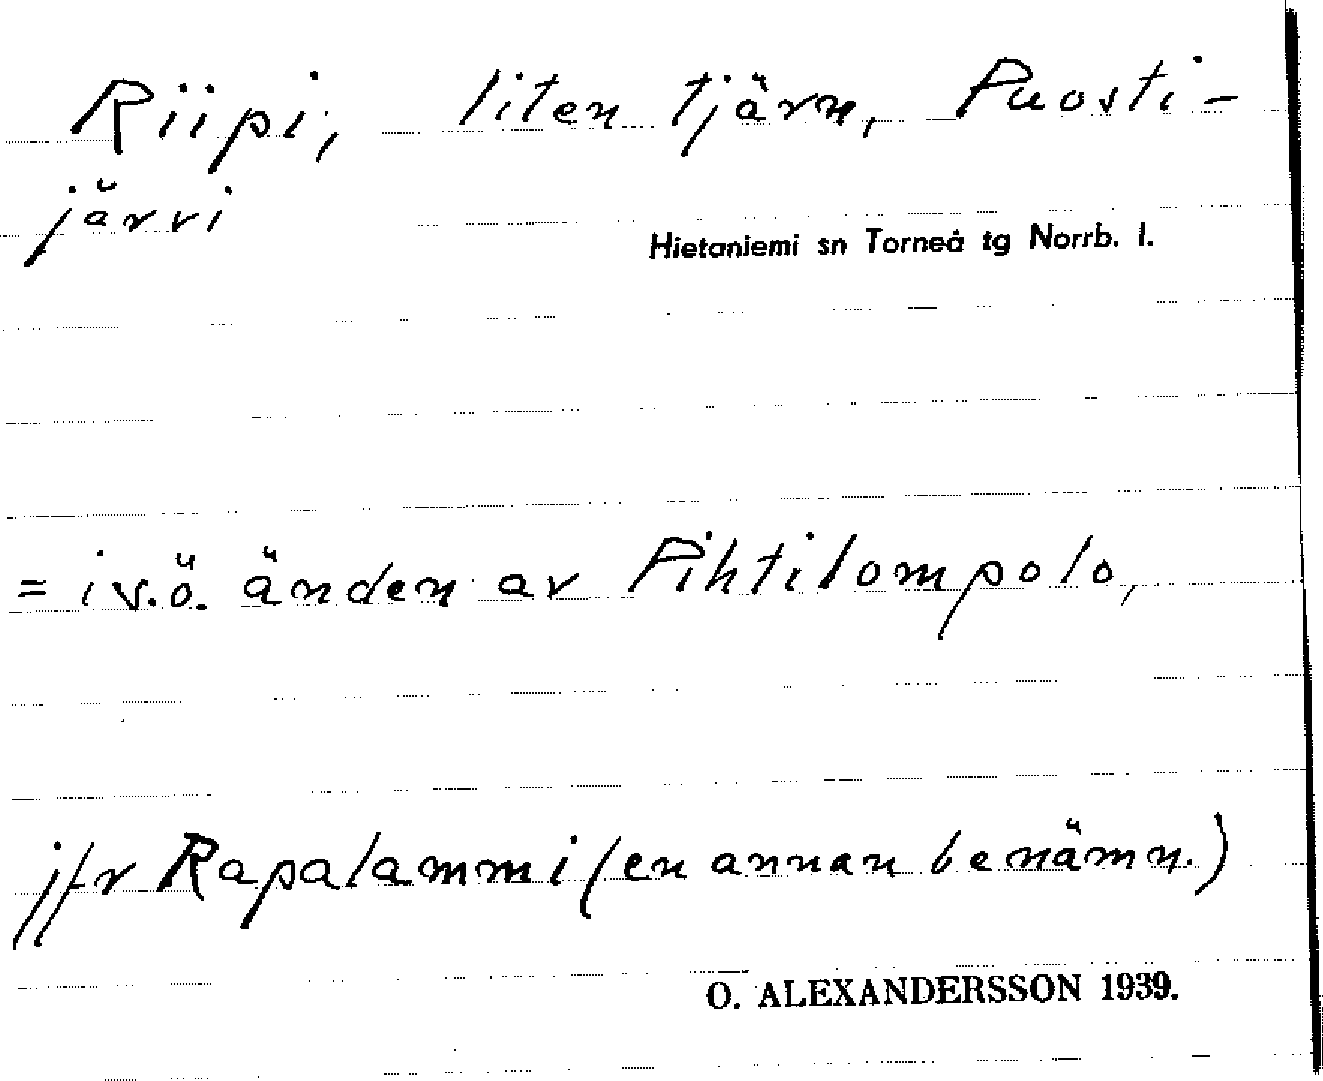 Riipi, liten tjärn, Puosti-
järvi
Hietaniemi sn Torneå tg Norrb. l.
= i v.ö. änden av Pihtilompolo,
jfr Rapalammi (en annan benämn.)
O. ALEXANDERSSON 1939.